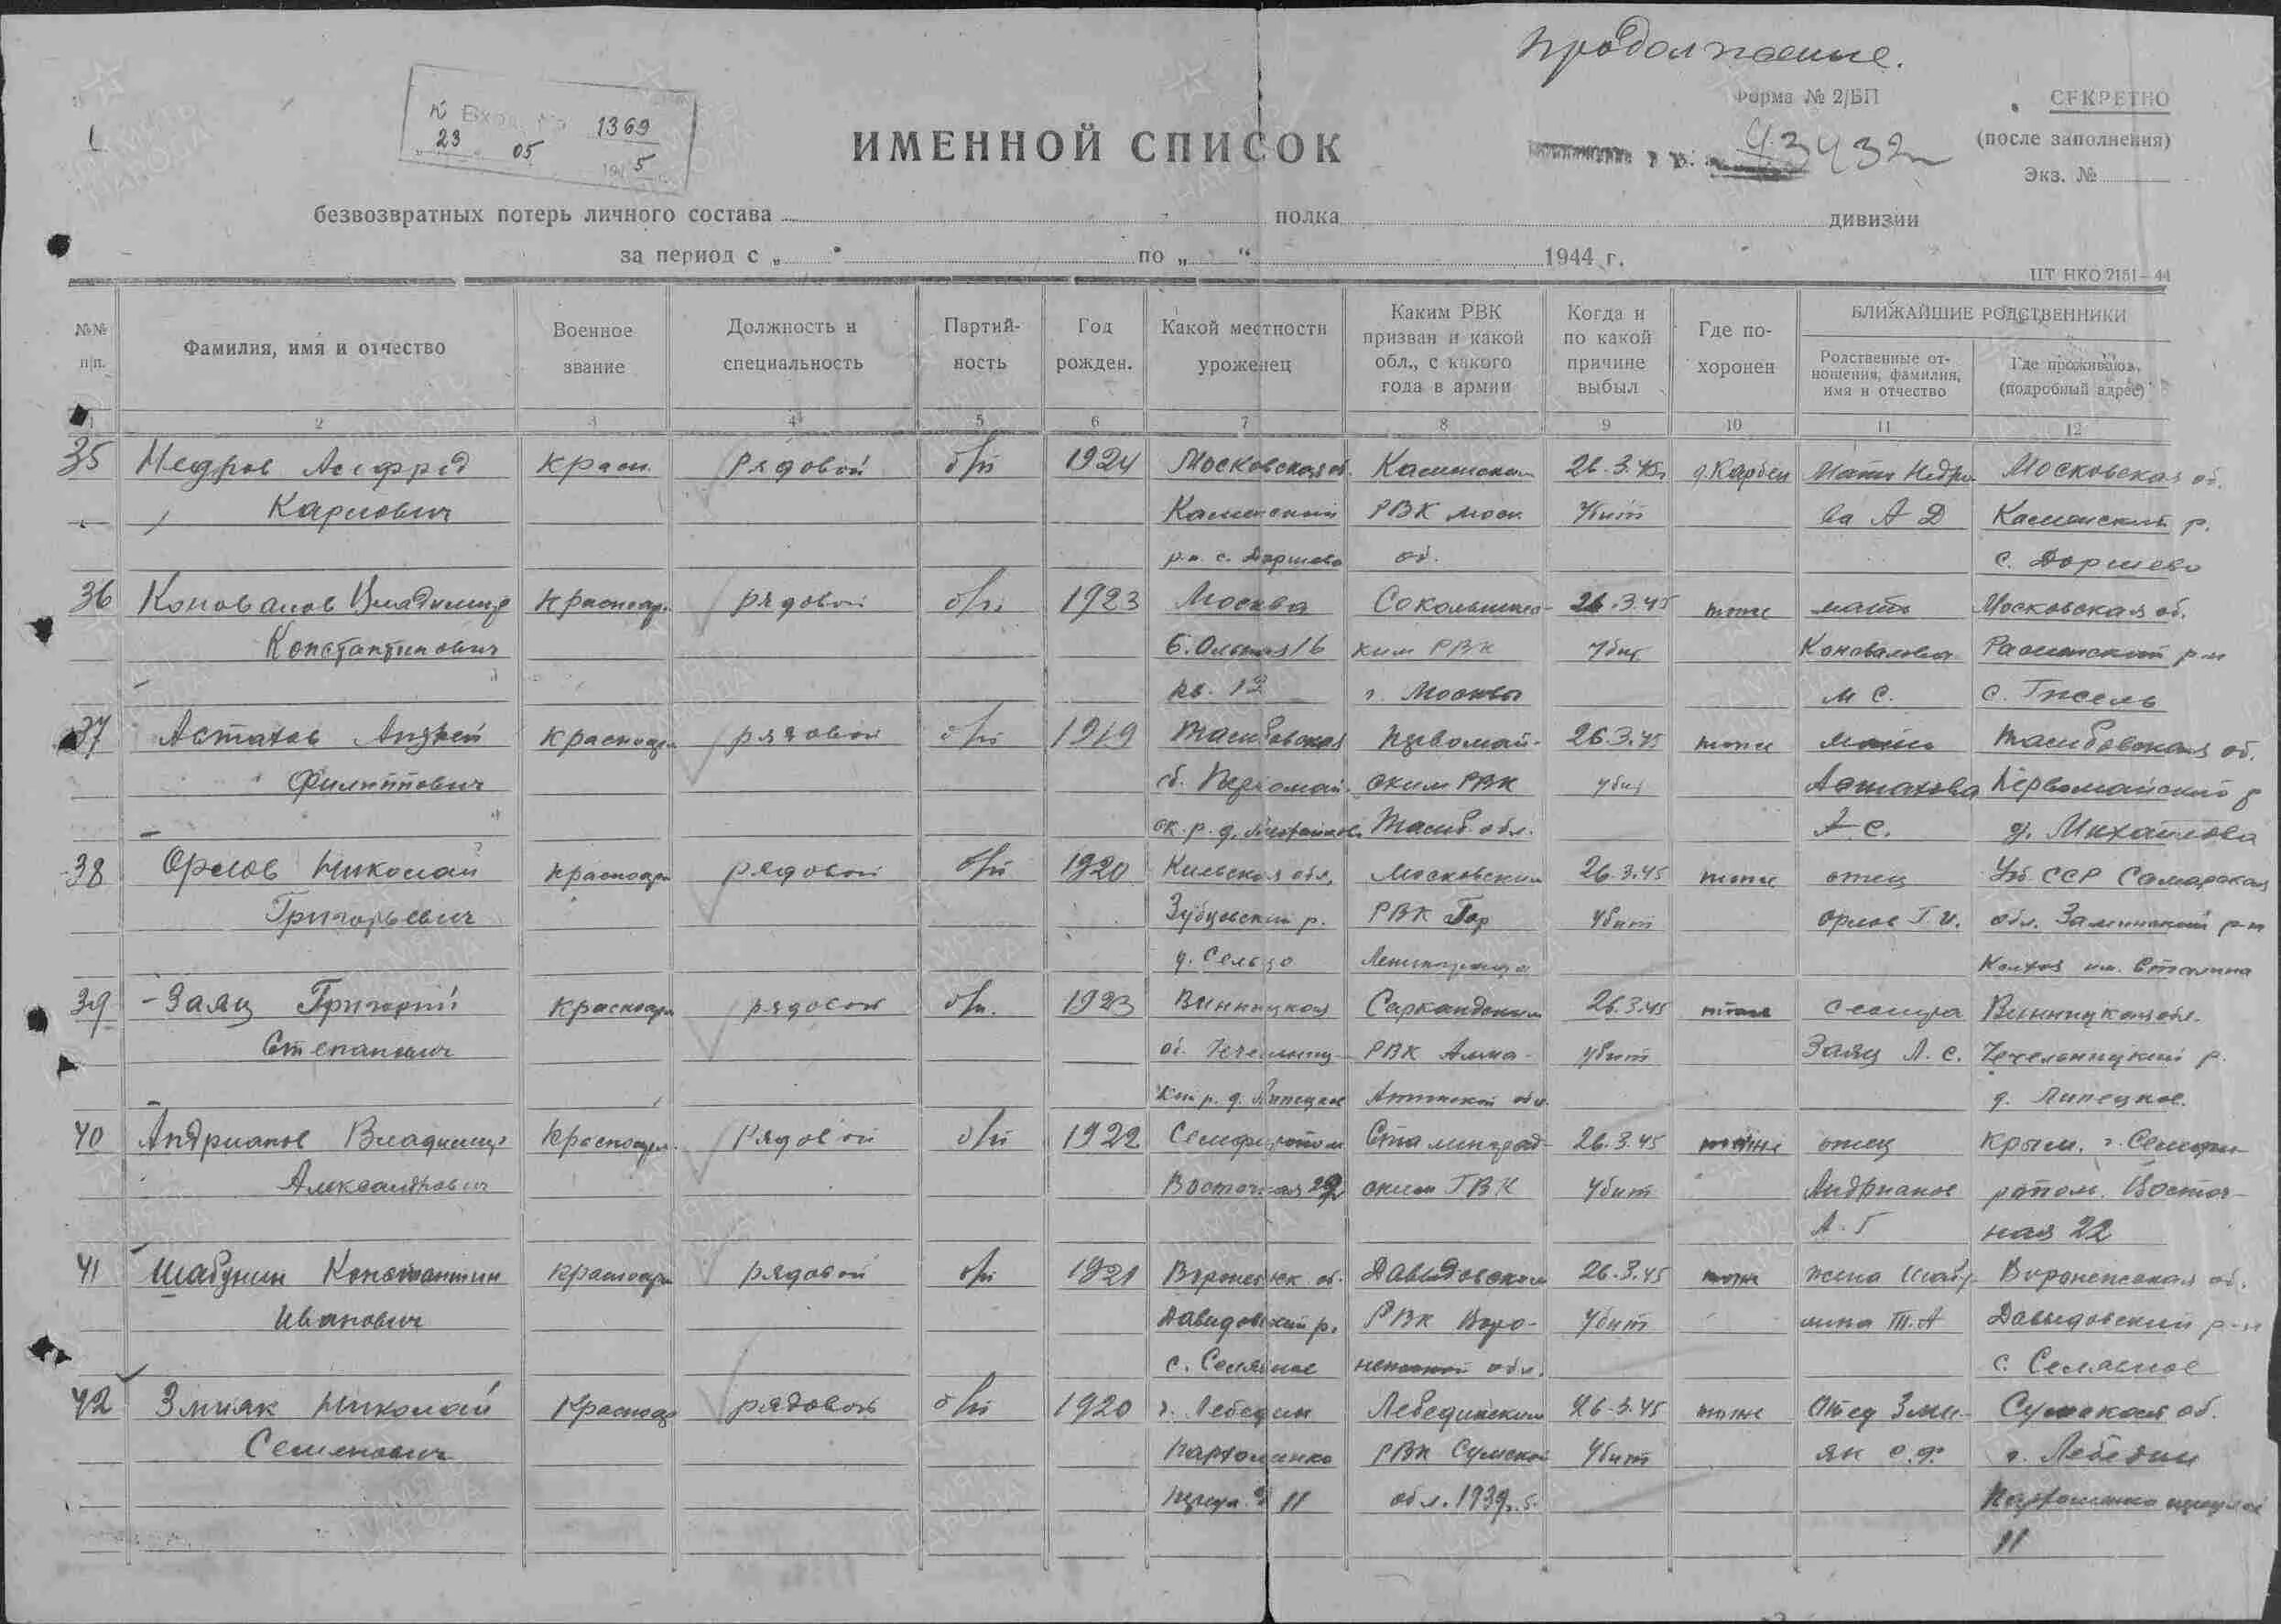 продолжение.
Форма № 2/БП
СЕКРЕТНО
(после заполнения)
Экз. №
43432
К Вход. № 1369
23 05 1945
ИМЕННОЙ СПИСОК
безвозвратных потерь личного состава полка дивизии
за период с „ " по „ " 1944 г.
ЦТ НКО 2151—44
№№ п/п. Фамилия, имя и отчество Военное звание Должность и специальность Партий-ность Год рожден. Какой местности уроженец Каким РВК призван и какой обл., с какого года в армии Когда и по какой причине выбыл Где по-хоронен БЛИЖАЙШИЕ РОДСТВЕННИКИ Родственные от-ношения, фамилия, имя и отчество Где проживают (подробный адрес)
1 2 3 4 5 6 7 8 9 10 11 12
35 красн. Рядовой б/п 1924 Московская об. 26.3.45г Мать Московская об.
Карлович Каменский РВК моск. убит ва А Д Каменский р.
р.н. с. об. с.
36 Коновалов Владимир Красноар. рядовой б/п. 1923 Москва Сокольниче- 26.3.45 тоже мать Московская об.
Константинович ким РВК убит Коновалова р-н
кв. 12 г. Москвы М С. с. Гжель
37 Астахов Андрей красноар рядовой б/п 1919 Тамбовская Первомай- 26.3.45 тоже мать Тамбовская об.
Филиппович об. Первомай. ским РВК убит Астахова Первомайский р
ск. р. д. Тамб. обл. А С. д. Михайловка
38 Орлов Николай красноар рядовой б/п 1920 обл. Московским 26.3.45 тоже отец Узб ССР Самаркая
Григорьевич Зубцовский р. РВК Гор убит Орлов Г. И. обл. р-н
д. Сельцо Ленинграда Колхоз им. Сталина
39 - Заяц Григорий красноар рядовой б/п. 1923 Винницкая Саркандским 26.3.45 тоже сестра Винницкая обл.
Степанович об. Чечельниц- РВК Алма- убит Заяц Л. С. Чечельницкий р.
кий р. д. Липецкое Атинской обл. д. Липецкое.
40 Андрианов Владимир Красноар. Рядовой б/п 1922 Симферополь Сталинград- 26.3.45 тоже отец Крым. г. Симфе-
Александрович Восточная 22 ским ГВК убит Андрианов рополь. Восточ-
А. Г ная 22
41 Шабунин Константин красноар рядовой б/п 1921 Воронежск. об. Давыдовским 26.3.45 тоже жена Шабу- Воронежская об.
Иванович Давидовский р. РВК Воро- убит нина Т. А Давыдовский р-н
с. нежской обл. с.
42 Змияк Николай Красноар рядовой б/п 1920 г. Лебедин Лебединским 26.3.45 тоже Отец Зми- Сумская об.
Семенович Пархоменко РВК Сумской убит як г. Лебедин
11 обл. 1939г. Пархоменко
11